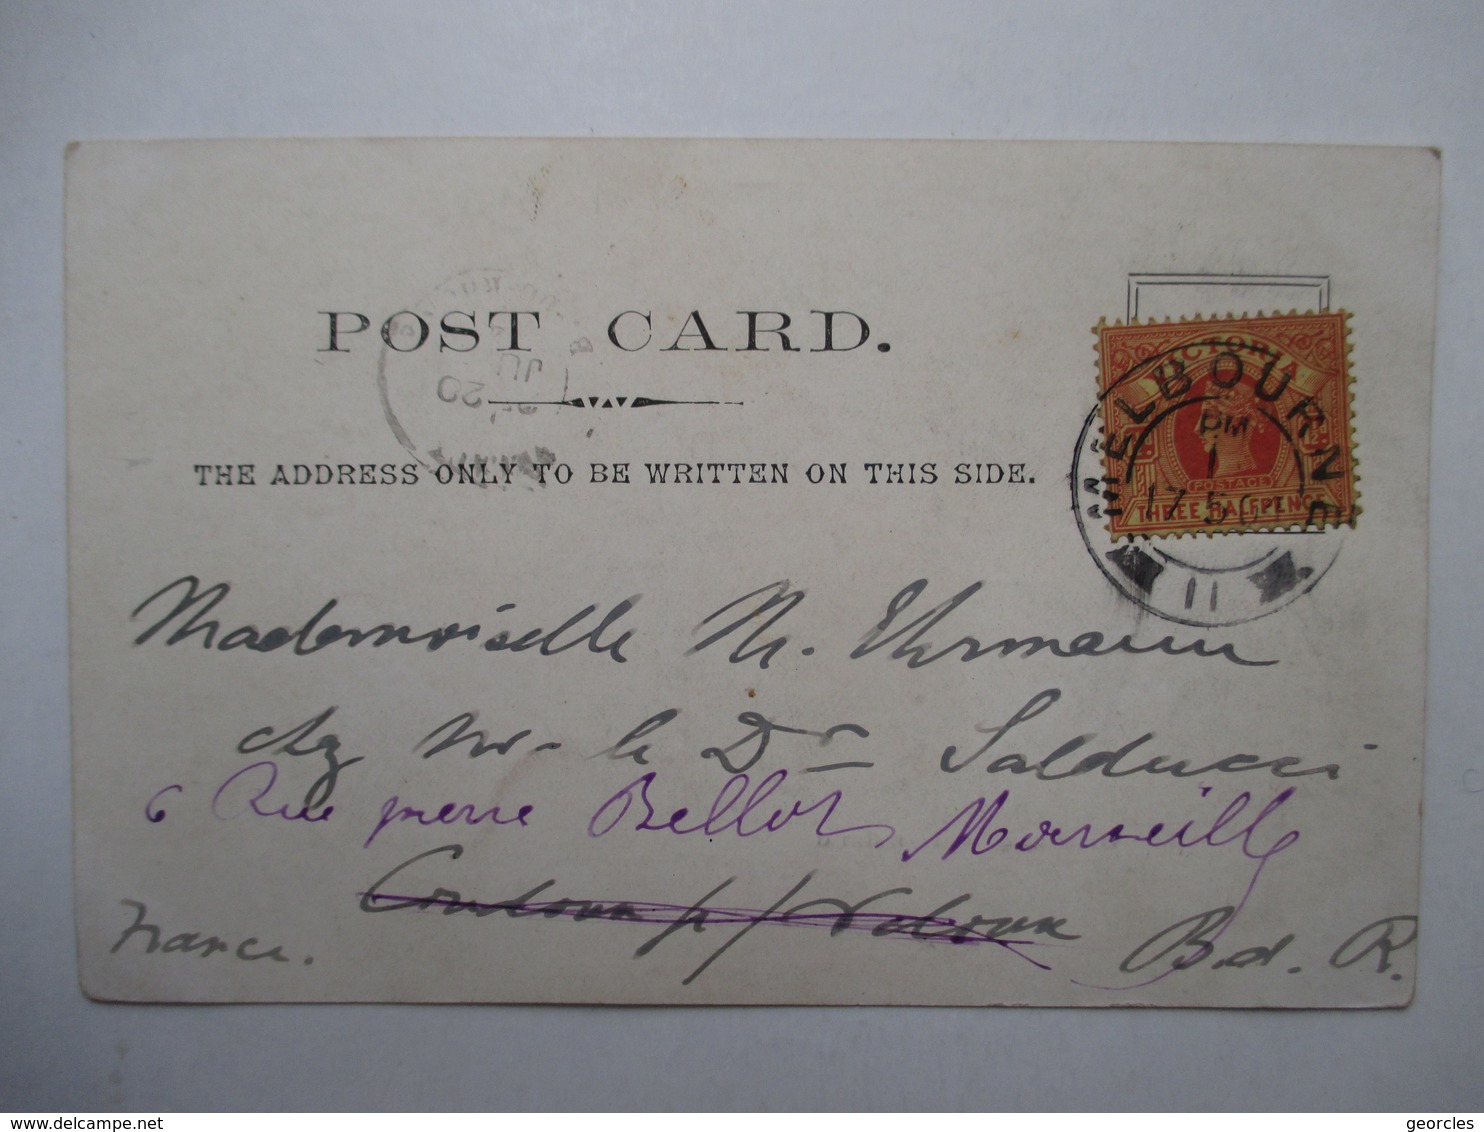 POST CARD.
THE ADDRESS ONLY TO BE WRITTEN ON THIS SIDE.
VICTORIA
POSTAGE
THREE HALFPENCE
MELBOURNE
PM
1
17 5 0
11
JU
20
Mademoiselle M. Ehrmann
chez Mr le Dr Salducci
6 Rue pierre Bellot Marseille
B.d. R.
France.
delcampe.net
georcles